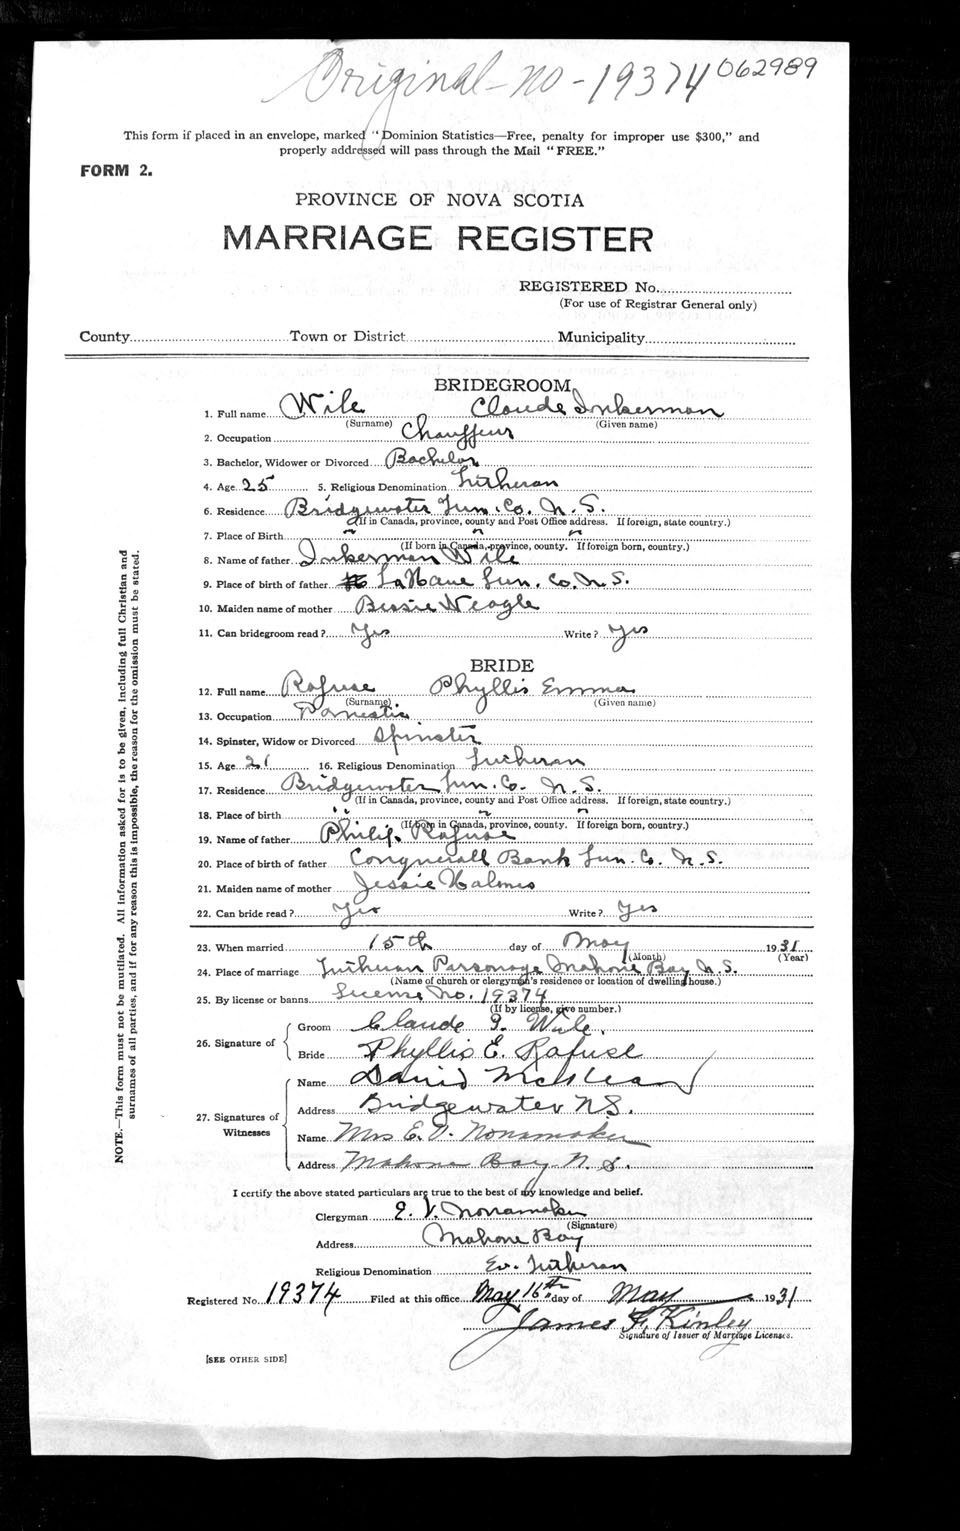 Original - no - 19374 062989
This form if placed in an envelope, marked "Dominion Statistics—Free, penalty for improper use $300," and
properly addressed will pass through the Mail "FREE."
FORM 2.
PROVINCE OF NOVA SCOTIA
MARRIAGE REGISTER
REGISTERED No.
(For use of Registrar General only)
County Town or District Municipality
BRIDEGROOM
1. Full name Wile Claude Inkerman
(Surname) (Given name)
2. Occupation Chauffeur
3. Bachelor, Widower or Divorced Bachelor
4. Age 25 5. Religious Denomination Lutheran
6. Residence Bridgewater Lun. Co. N. S.
(If in Canada, province, county and Post Office address. If foreign, state country.)
7. Place of Birth " " "
(If born in Canada, province, county. If foreign born, country.)
8. Name of father Inkerman Wile
9. Place of birth of father LaHave Lun. Co. N. S.
10. Maiden name of mother Bessie Neagle
11. Can bridegroom read? Yes Write? Yes
BRIDE
12. Full name Rafuse Phyllis Emma
(Surname) (Given name)
13. Occupation Domestic
14. Spinster, Widow or Divorced Spinster
15. Age 21 16. Religious Denomination Lutheran
17. Residence Bridgewater Lun. Co. N. S.
(If in Canada, province, county and Post Office address. If foreign, state country.)
18. Place of birth " " "
(If born in Canada, province, county. If foreign born, country.)
19. Name of father Philip Rafuse
20. Place of birth of father Conquerall Bank Lun. Co. N. S.
21. Maiden name of mother Jessie
22. Can bride read? Yes Write? Yes
23. When married 15th day of May 1931
(Month) (Year)
24. Place of marriage Lutheran Parsonage Mahone Bay N. S.
(Name of church or clergyman's residence or location of dwelling house.)
25. By license or banns License No. 19374
(If by license, give number.)
26. Signature of
Groom Claude I. Wile.
Bride Phyllis E. Rafuse
27. Signatures of Witnesses
Name David
Address Bridgewater N.S.
Name Mrs E. V. Nonamaker
Address Mahone Bay N. S.
I certify the above stated particulars are true to the best of my knowledge and belief.
Clergyman E. V. Nonamaker
(Signature)
Address Mahone Bay
Religious Denomination Ev. Lutheran
Registered No. 19374 Filed at this office May 16th day of May 1931
James F. Kinley
Signature of Issuer of Marriage Licenses.
[SEE OTHER SIDE]
NOTE.—This form must not be mutilated. All information asked for is to be given, including full Christian and
surnames of all parties, and if for any reason this is impossible, the reason for the omission must be stated.